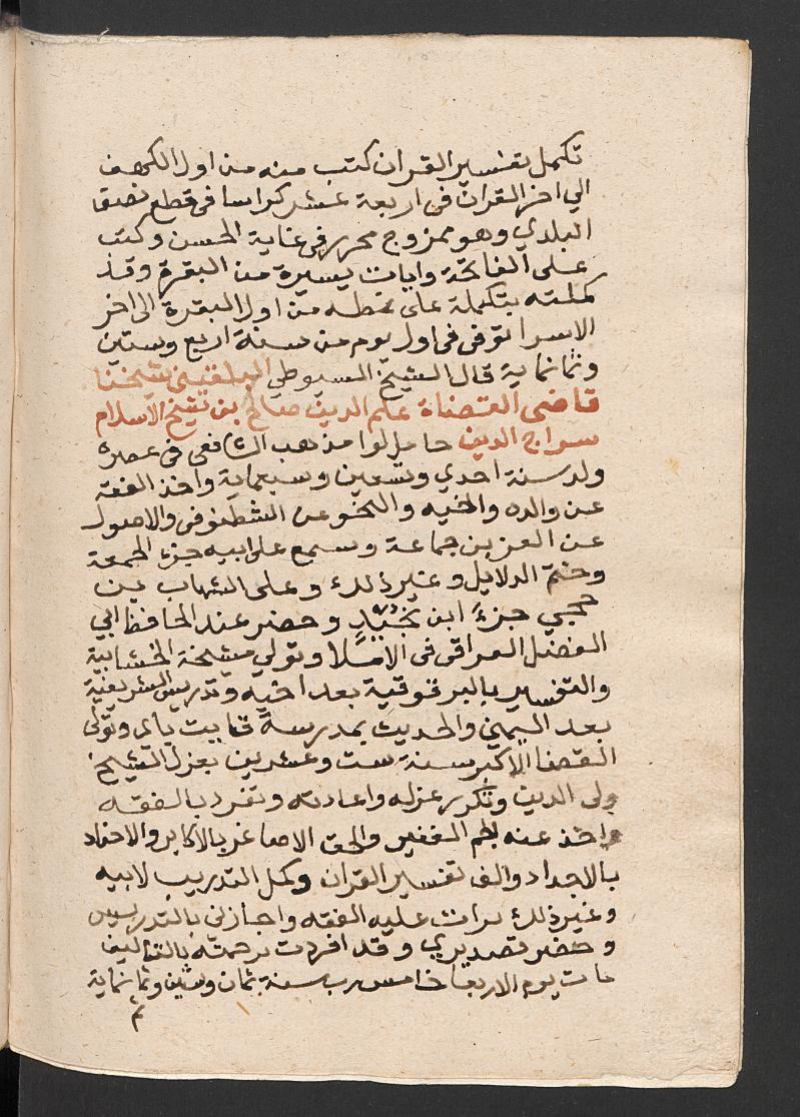 تكمل تفسير القران كتب منه من اول الكهف
الي اخر القران في اربعة عشر كراسا في قطع نصف
البلدي وهو ممزوج محرر في غاية الحسن وكتب
على الفاتحة وايات يسيرة من البقرة وقد
كملته بتكملة على نمطه من اول البقرة الى اخر
الاسرا توفى فى اول يوم من سنة اربع وستين
وثمانماية قال الشيخ السيوطي البلقيني شيخنا
قاضى القضاة علم الدين صالح بن شيخ الاسلام
سراج الدين حامل لوا مذهب الشافعى فى عصره
ولد سنة احدي وتسعين وسبعماية واخذ الفقه
عن والده واخيه والنحو عن الشطنوفى والاصول
عن العز بن جماعة وسمع على ابيه جزء الجمعة
وختم الدلايل وغير ذلك وعلى الشهاب بن
حجي جزءً ابن نجيد وحضر عند الحافظ ابي
الفضل العراقى فى الاملا وتولي مشيخة الخشابية
والتفسير بالبرقوقية بعد اخيه وتدريس الشريفية
بعد اليمني والحديث بمدرسة قايت باى وتولى
القضا الاكبر سنة ست وعشرين بعزل الشيخ
ولى الدين وتكرر عزله واعادته وتفرد بالفقه
واخذ عنه الجم الغفير والحق الاصاغر بالاكابر والاحفاد
بالاجداد والف تفسير القران وكمل التدريب لابيه
وغير ذلك قرات عليه الفقه واجازنى بالتدريس
وحضر تصديري وقد افردت ترجمته بالتاليف
مات يوم الاربعا خامس رجب سنة ثمان وستين وثمانماية